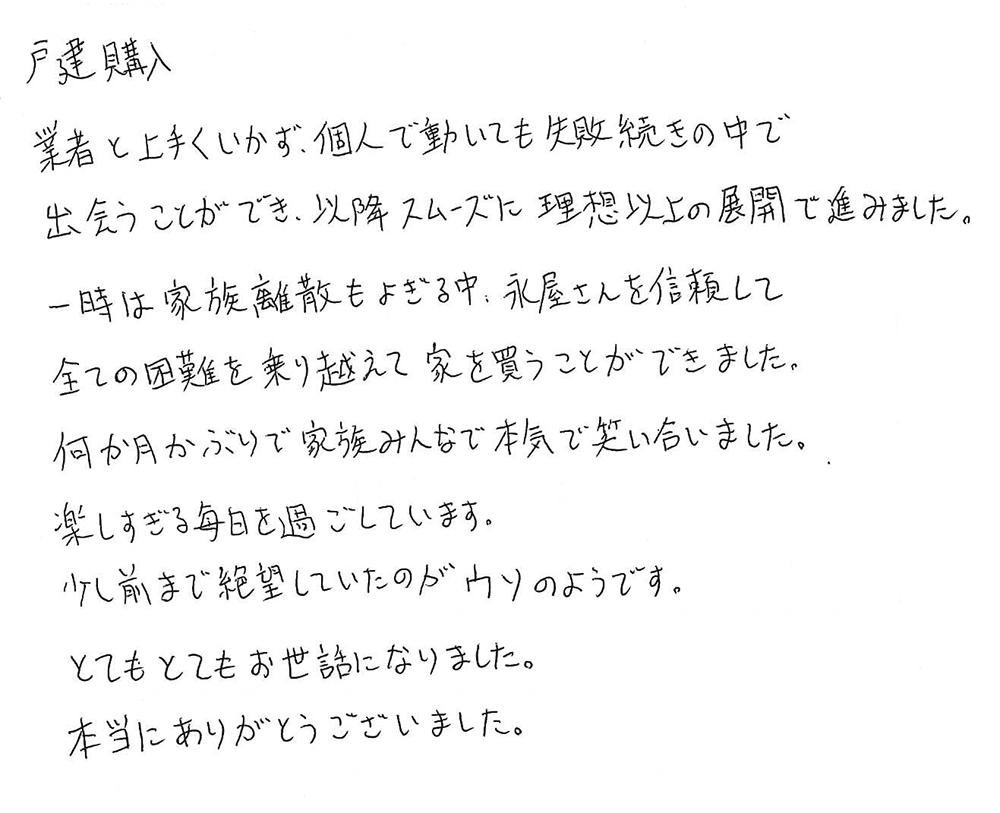 戸建購入
業者と上手くいかず、個人で動いても失敗続きの中で
出会うことができ、以降スムーズに理想以上の展開で進みました。
一時は家族離散もよぎる中、永屋さんを信頼して
全ての困難を乗り越えて家を買うことができました。
何か月かぶりで家族みんなで本気で笑い合いました。
楽しすぎる毎日を過ごしています。
少し前まで絶望していたのがウソのようです。
とてもとてもお世話になりました。
本当にありがとうございました。